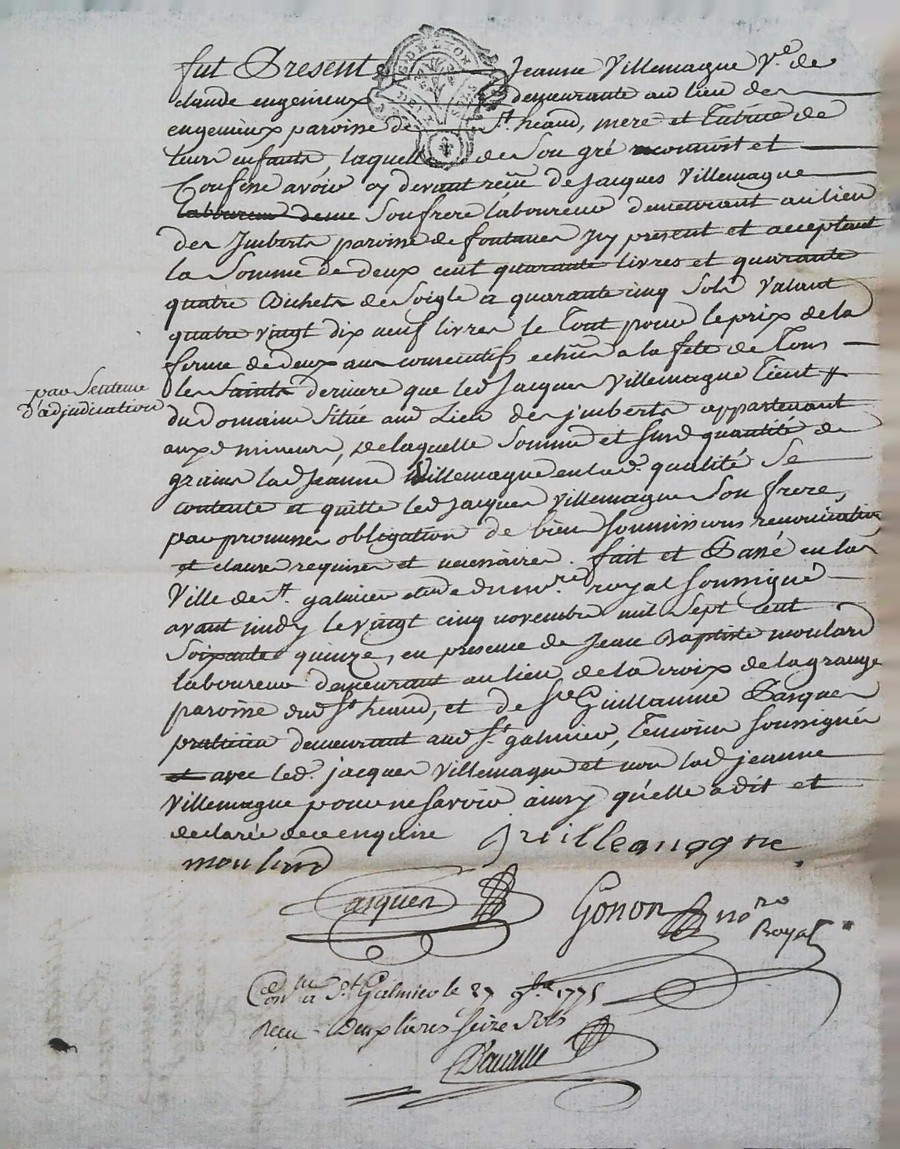 fut Present Jeanne Villemagne Ve de
claude engenieux demeurante au lieu des
engenieux paroisse de St heand, mere et tutrice de
leurs enfants, laquelle de son gré reconnoit et
Confesse avoir cy devant reçu de Jacques Villemagne
son frere laboureur demeurant au lieu
des Jmberts paroisse de fontanes Jcy present et acceptant
la Somme de deux cent quarante livres et quarante
quatre Bichets de Soigle a quarante cinq Sols valant
quatre vingt dix neuf livres le Tout pour le prix de la
ferme de deux ans consecutifs echus a la fete de Tous
les Saints derniere que led Jacques Villemagne Tient #
par Sentence
d'adjudication
du Domaine Situé aud Lieu des jmberts appartenant
auxd mineurs, de laquelle Somme et susd quantité de
grains lad Jeanne Villemagne en lad. qualité Se
contente et quitte led Jacques Villemagne Son frere,
par promesses obligation de biens soumissions renonciations
et clauses requises et necessaires. fait et Passé en la
Ville de St. galmier etude du nore. royal soussigné
avant midy le vingt cinq novembre mil Sept cent
Soixante quinze, en presence de Jean Baptiste moulard
laboureur demeurant au lieu de la croix de la grange
paroisse dud St heand, et de Sr Guillaume Pasquer
praticien demeurant aud St. galmier, temoins soussignés
avec led. jacques Villemagne et non lad jeanne
Villemagne pour ne savoir ainsy qu'elle a dit et
declaré de ce enquise
J Villemagne
moulard
Pasquer
Gonon nore
Royal
Conlé a St Galmier le 27 9bre 1775
reçu deux livres seize sols